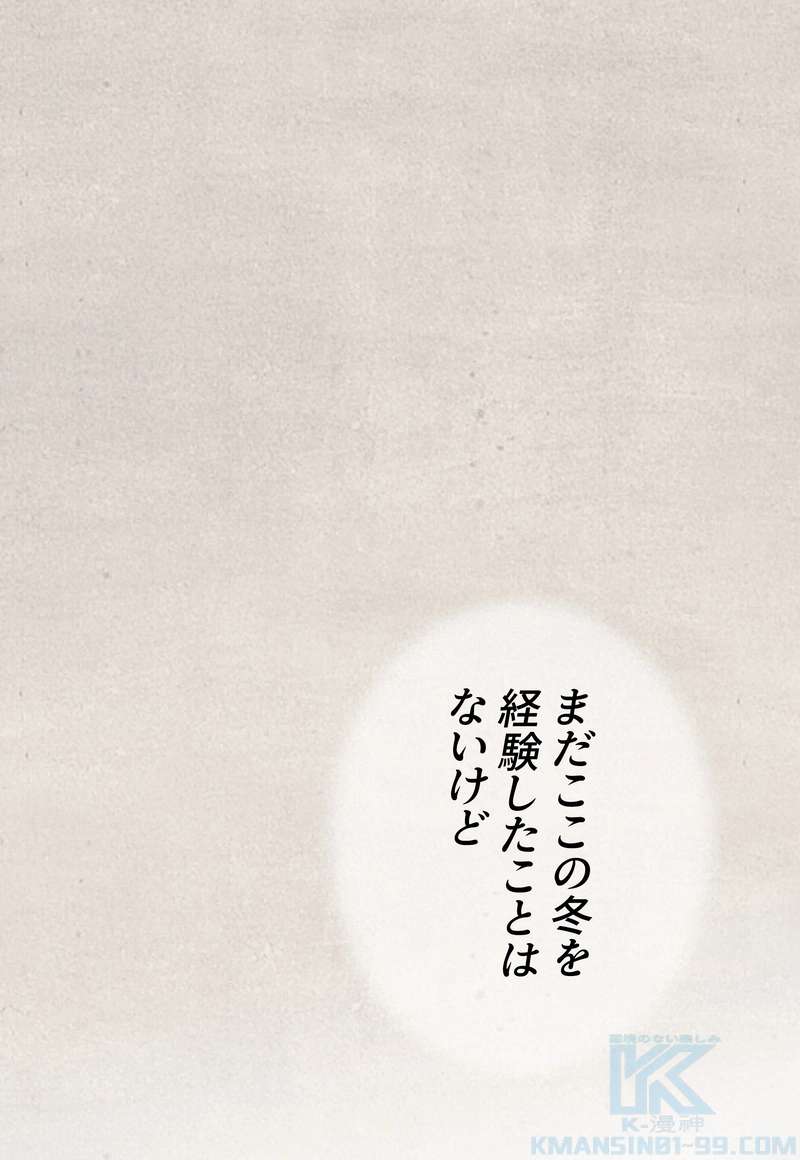 まだここの冬を
経験したことは
ないけど
国境のない楽しみ
K-漫神
KMANSIN01-99.COM